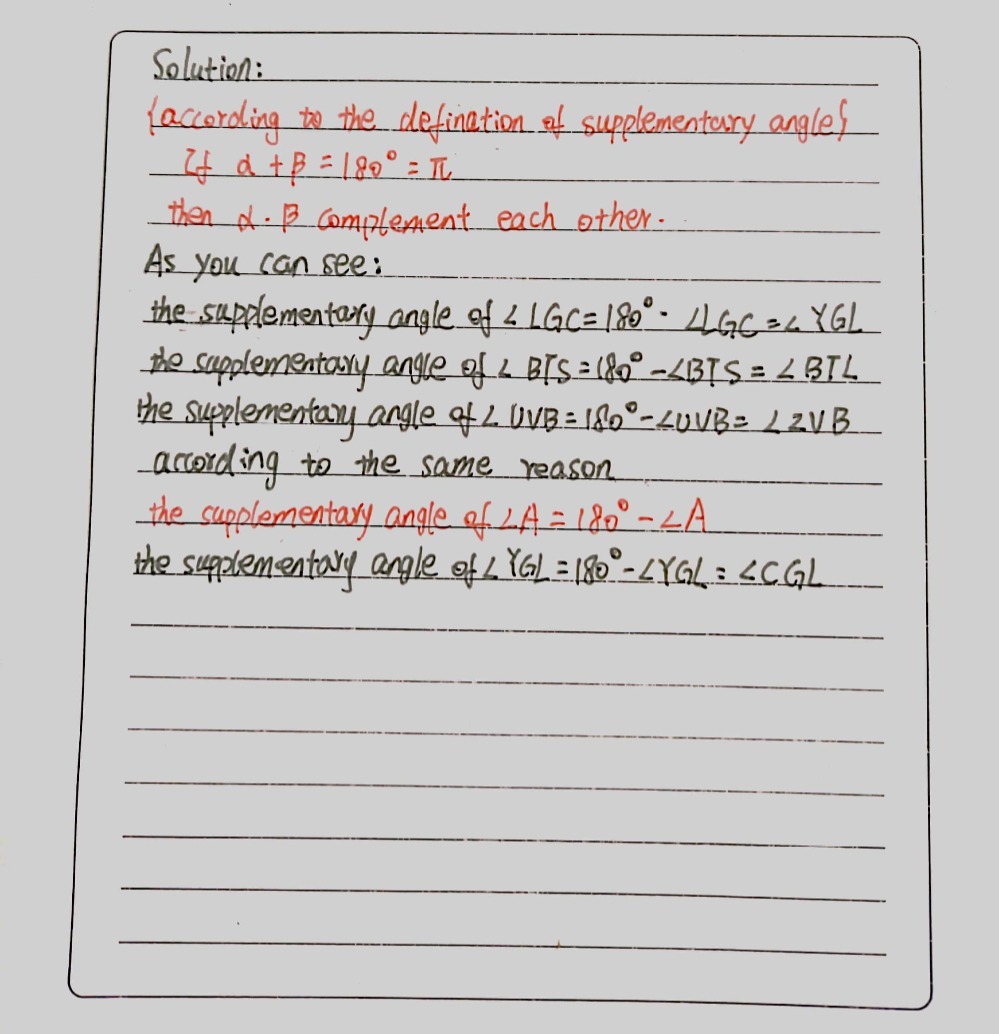 Solution:
{according to the defination of supplementary angle}
If α + β = 180° = π
then α · β complement each other.
As you can see:
the supplementary angle of ∠LGC = 180° - ∠LGC = ∠YGL
the supplementary angle of ∠BTS = 180° - ∠BTS = ∠BTL
the supplementary angle of ∠UVB = 180° - ∠UVB = ∠ZVB
according to the same reason
the supplementary angle of ∠A = 180° - ∠A
the supplementary angle of ∠YGL = 180° - ∠YGL = ∠CGL